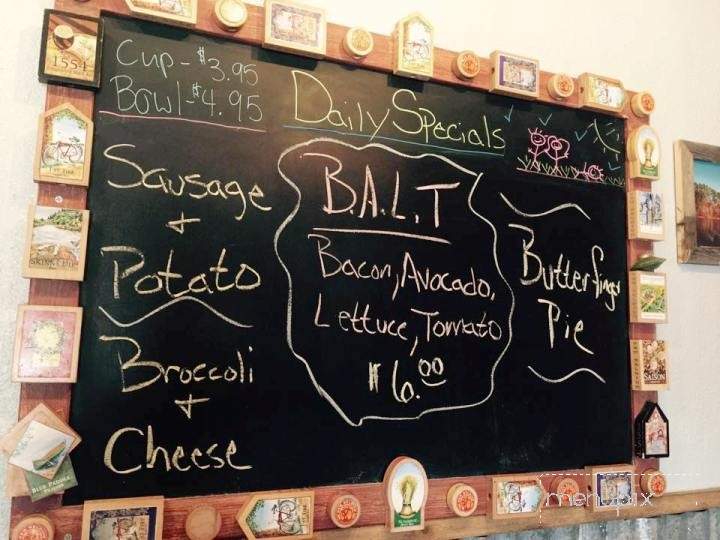 Cup - $3.95
Bowl - $4.95
Sausage
+
Potato
Broccoli
+
Cheese
Daily Specials
B.A.L.T
Bacon, Avocado,
Lettuce, Tomato
$6.00
Butterfinger
Pie
1554
SKINNY DIP
SAISON
BLUE PADDLE
menupix